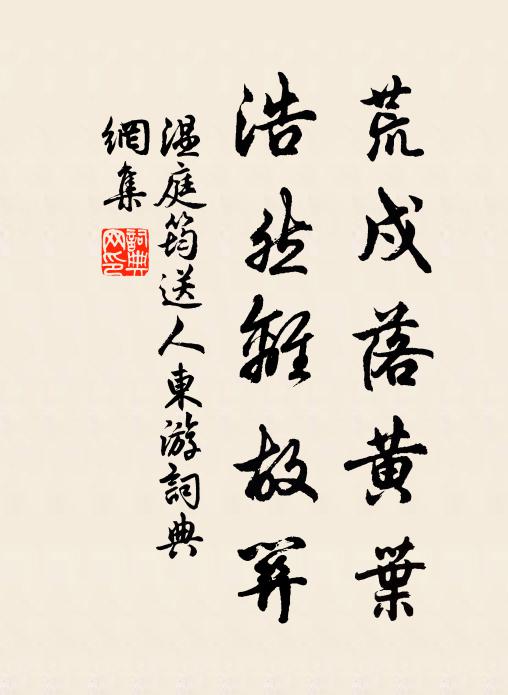 荒戍落黄葉
浩然離故関
温庭筠送人東游詞典
網集
詞典網印